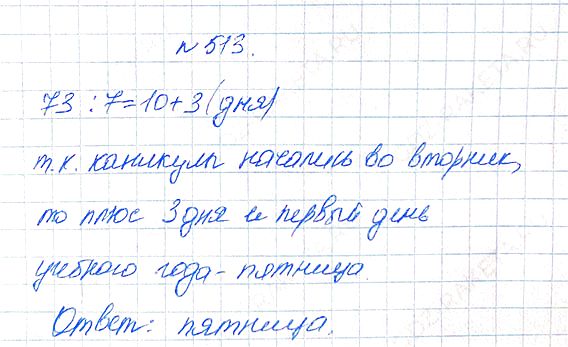 № 513.
73 : 7 = 10 + 3 (дня)
т.к. каникулы начались во вторник,
то плюс 3 дня и первый день
учебного года - пятница.
Ответ: пятница.